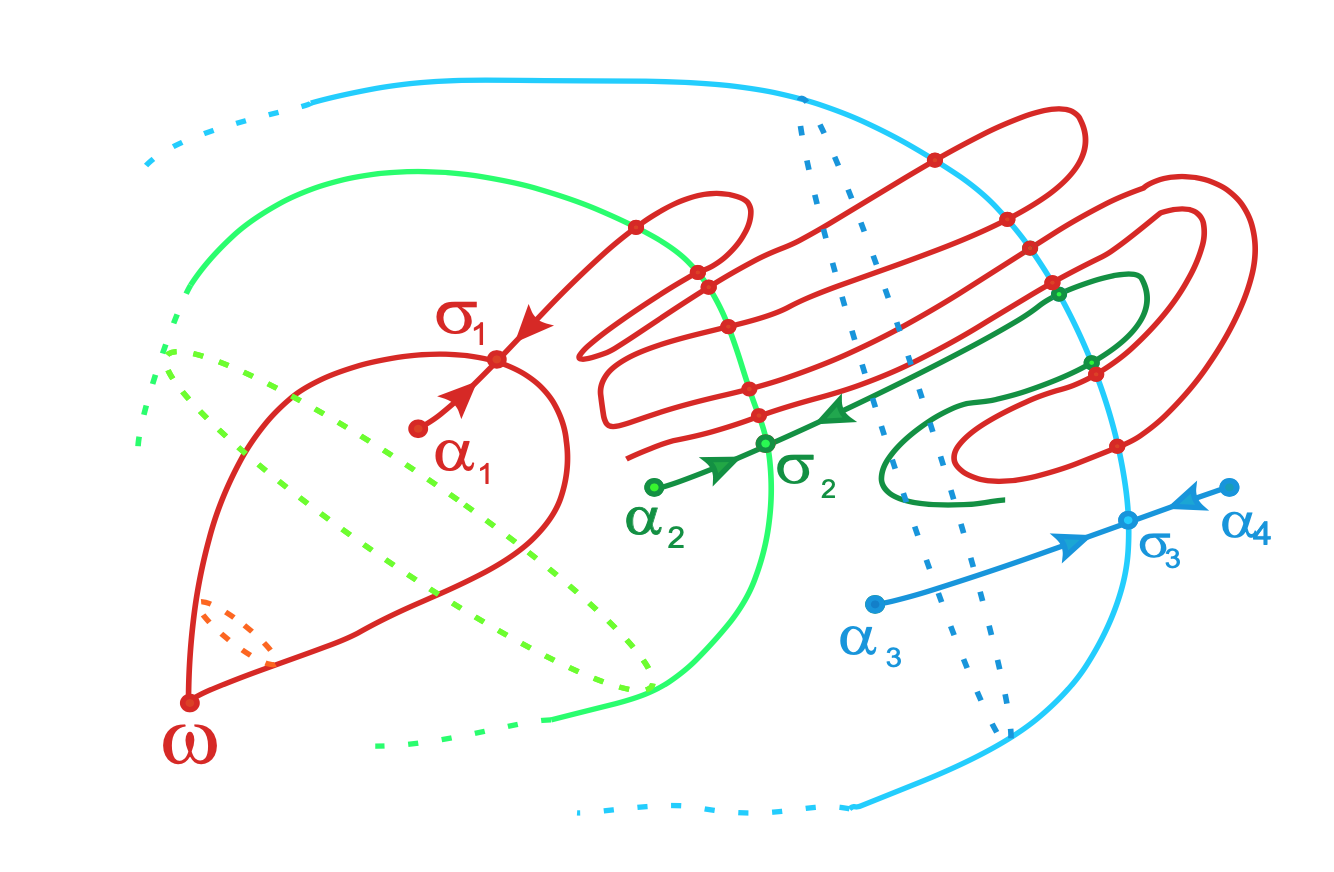 σ1
α1
σ2
α2
α4
σ3
α3
ω